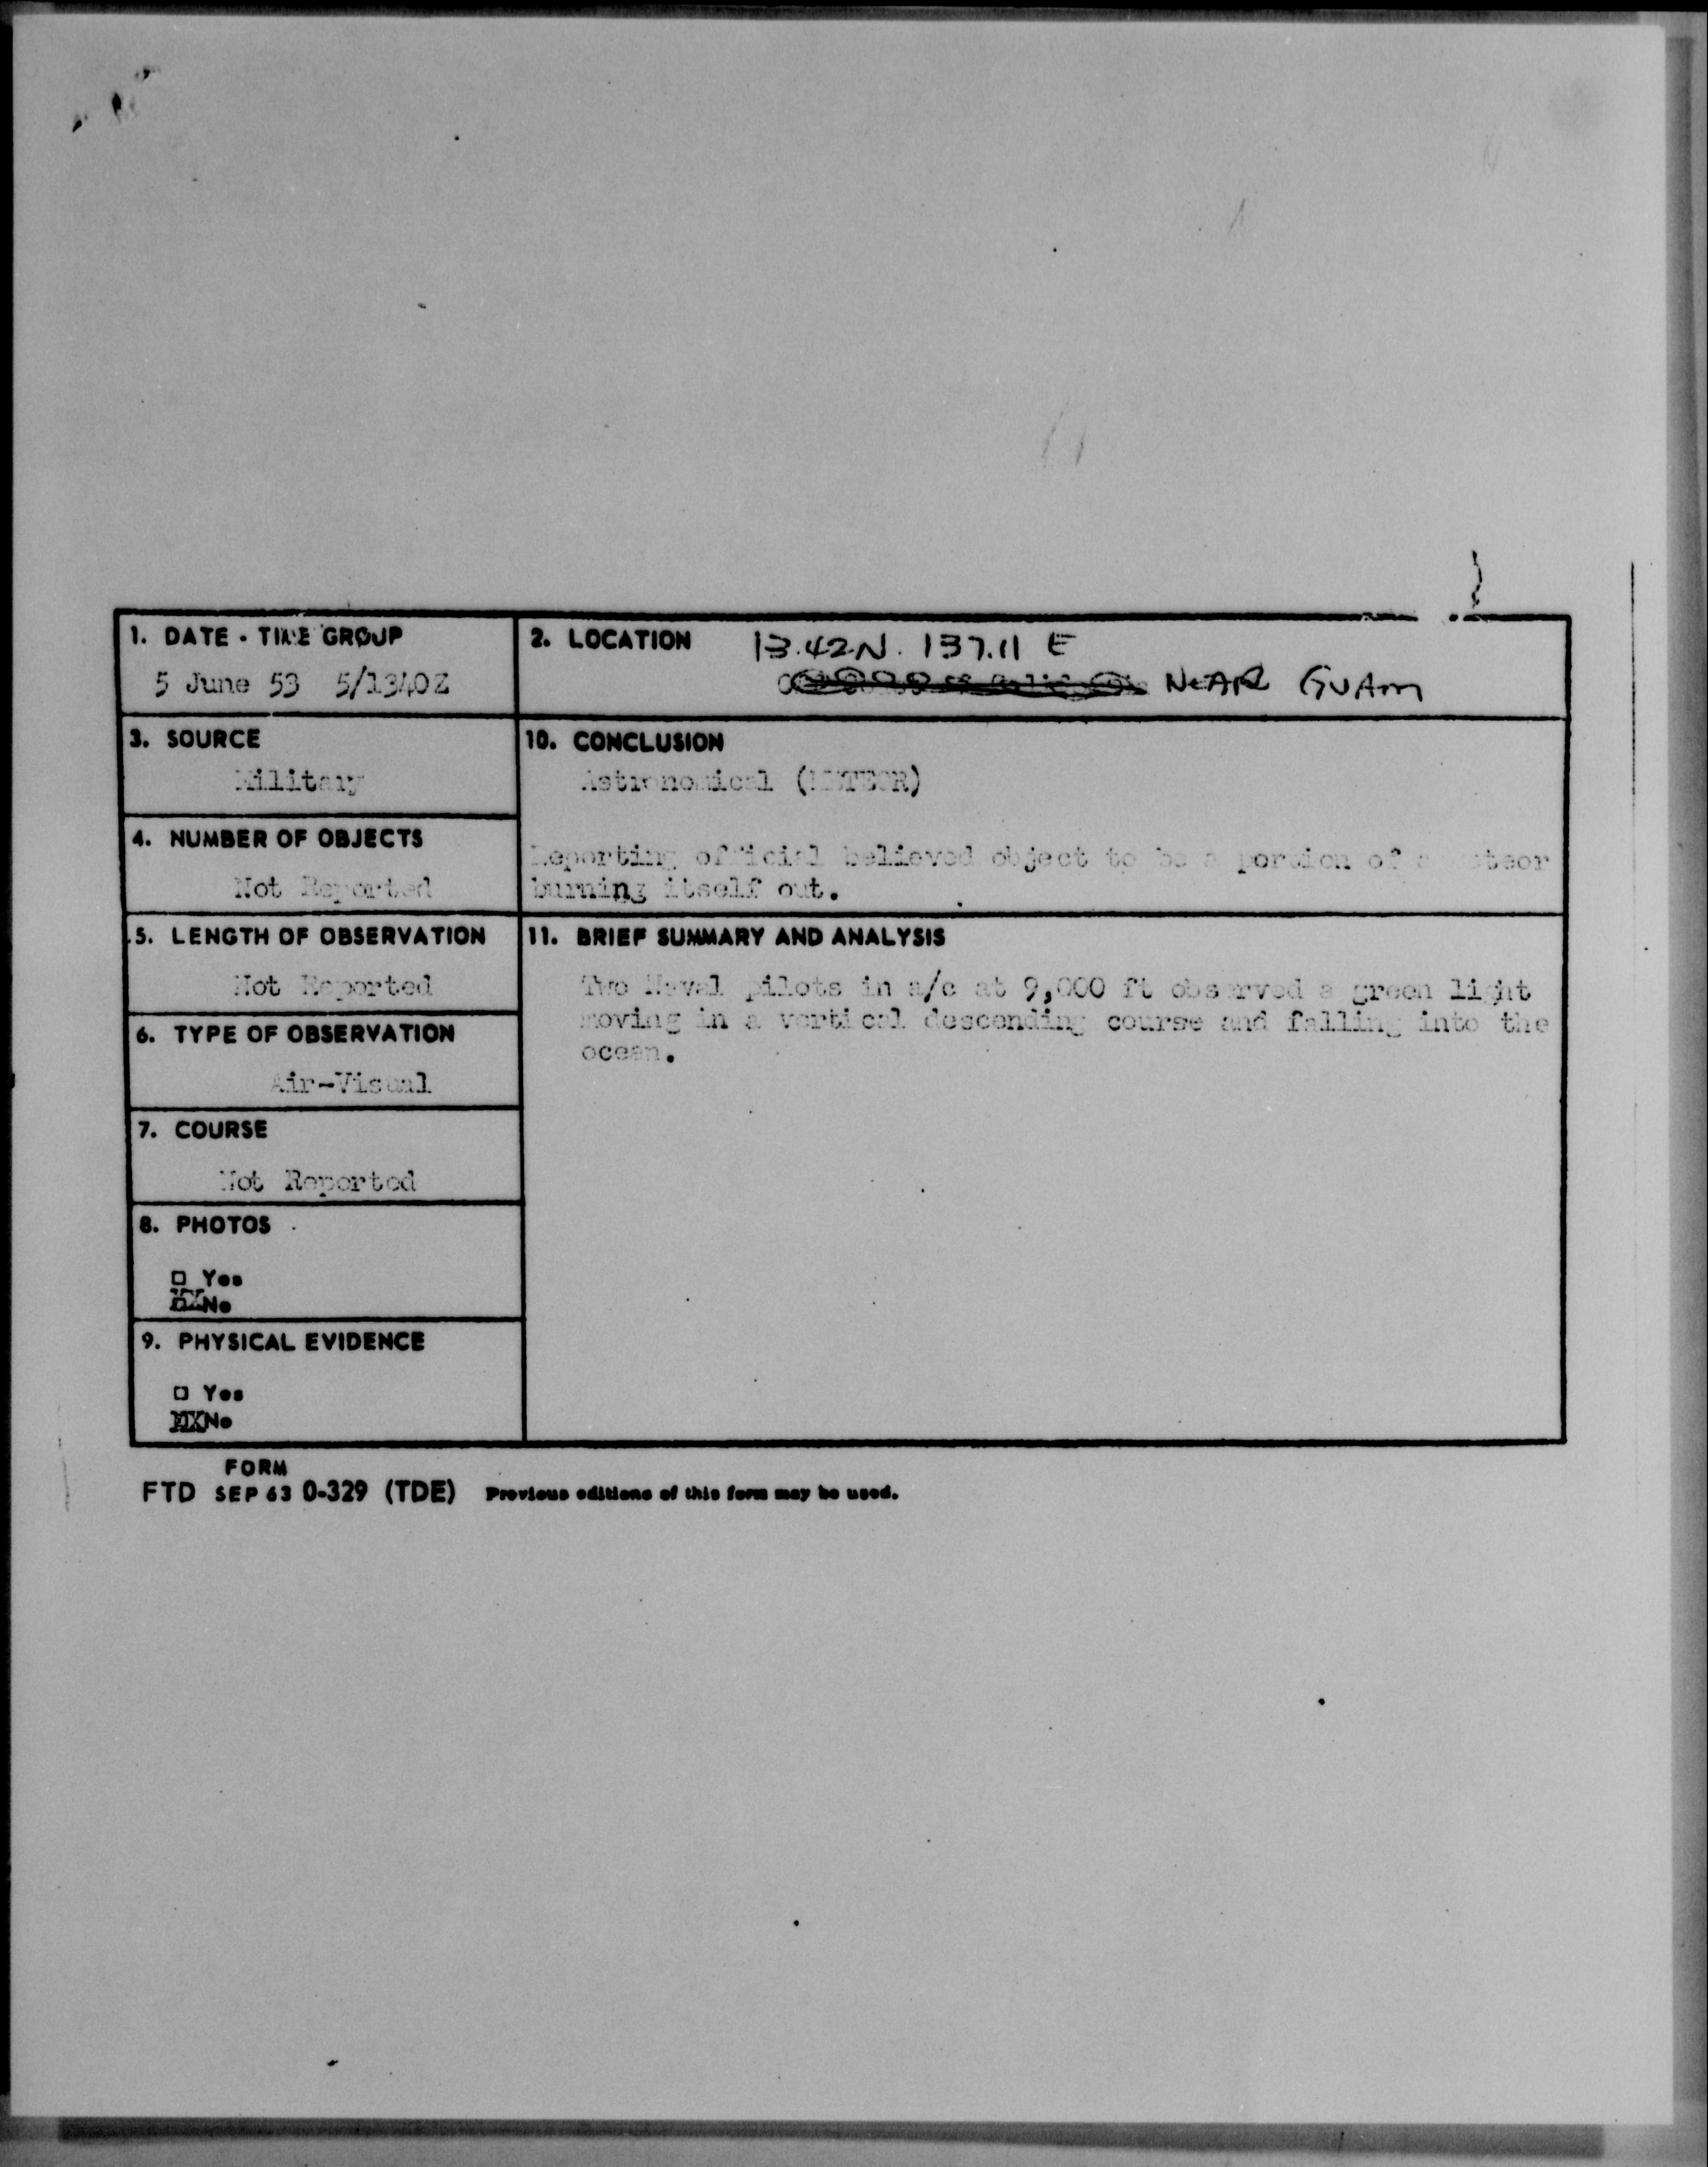 1. DATE - TIME GROUP
5 June 53 5/1340Z
2. LOCATION 13.42N. 137.11 E
NEAR GUAm
3. SOURCE
Military
10. CONCLUSION
Astronomical (METEOR)
Reporting official believed object to be a portion of a meteor
burning itself out.
4. NUMBER OF OBJECTS
Not Reported
5. LENGTH OF OBSERVATION
Not Reported
11. BRIEF SUMMARY AND ANALYSIS
Two Naval pilots in a/c at 9,000 ft observed a green light
moving in a vertical descending course and falling into the
ocean.
6. TYPE OF OBSERVATION
Air-Visual
7. COURSE
Not Reported
8. PHOTOS
□ Yes
XXNo
9. PHYSICAL EVIDENCE
□ Yes
XXNo
FORM
FTD SEP 63 0-329 (TDE) Previous editions of this form may be used.